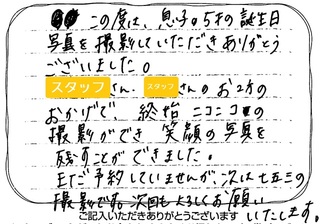 この度は、息子の5才の誕生日
写真を撮影していただきありがとう
ございました。
スタッフさん、スタッフさんのお2方の
おかげで、終始ニコニコの
撮影ができ笑顔の写真を
残すことができました。
まだ予約していませんが、次は七五三の
撮影です。次回もよろしくお願い
いたします。
ご記入いただきありがとうございます